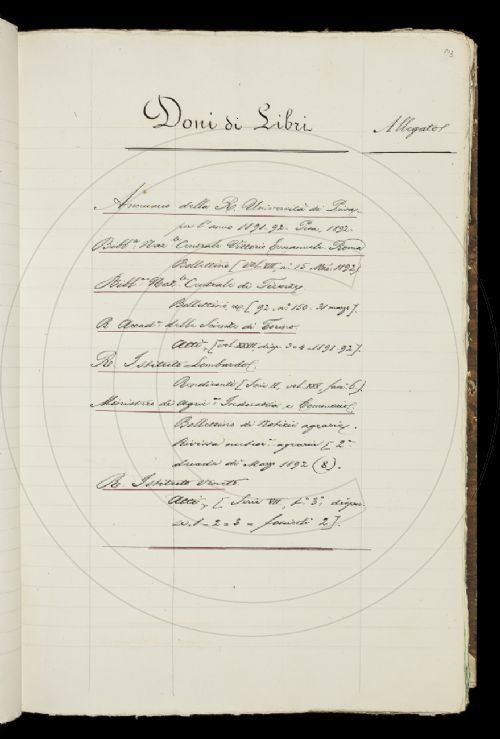 Doni di Libri
Allegato
Annuario della R. Università di Pisa
per l'anno 1891-92. Pisa, 1892.
Bibl.ca Naz.le Centrale Vittorio Emanuele Roma
Bollettino [Vol. VII, n.° 15 1892]
Bibl.ca Naz.le Centrale di Firenze
Bollettino, [92 n.° 150. 31 marzo].
R. Accad.a delle Scienze di Torino
Atti, [vol. XXVII, disp. 3-4 1891-92].
R. Istituto Lombardo,
Rendiconti [Serie II, vol. XXV, fasc. 6].
Ministero di Agric.a Industria e Commercio,
Bollettino di Notizie agrarie.
Rivista agraria [2.a
decade di Marzo 1892 (8).
R. Istituto Veneto
Atti, [Serie VII, T.° 3°, disp.
n. 1-2-3 = fascicoli 2].